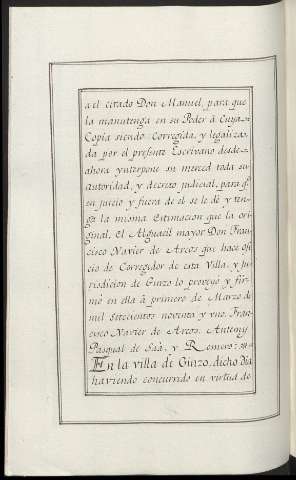 a el citado Don Manuel, para que
la manutenga en su Poder à Cuya
Copia siendo Corregida, y legaliza-
da por el presente Escrivano desde
ahora ynterpone su merced toda su
autoridad, y decreto judicial, para qe
en juicio y fuera de el se le dè y ten-
ga la misma estimacion que la ori-
ginal. El Alguacil mayor Don Fran
cisco Xavier de Arcos que hace ofi
cio de Corregidor de esta Villa, y ju-
risdicion de Ginzo lo proveyo y fir-
mò en ella à primero de Marzo de
mil setecientos noventa y uno. Fran-
cisco Xavier de Arcos. Antemy
Pasqual de Saà, y Romero:
En la villa de Ginzo, dicho Dia
haviendo concurrido en virtud de